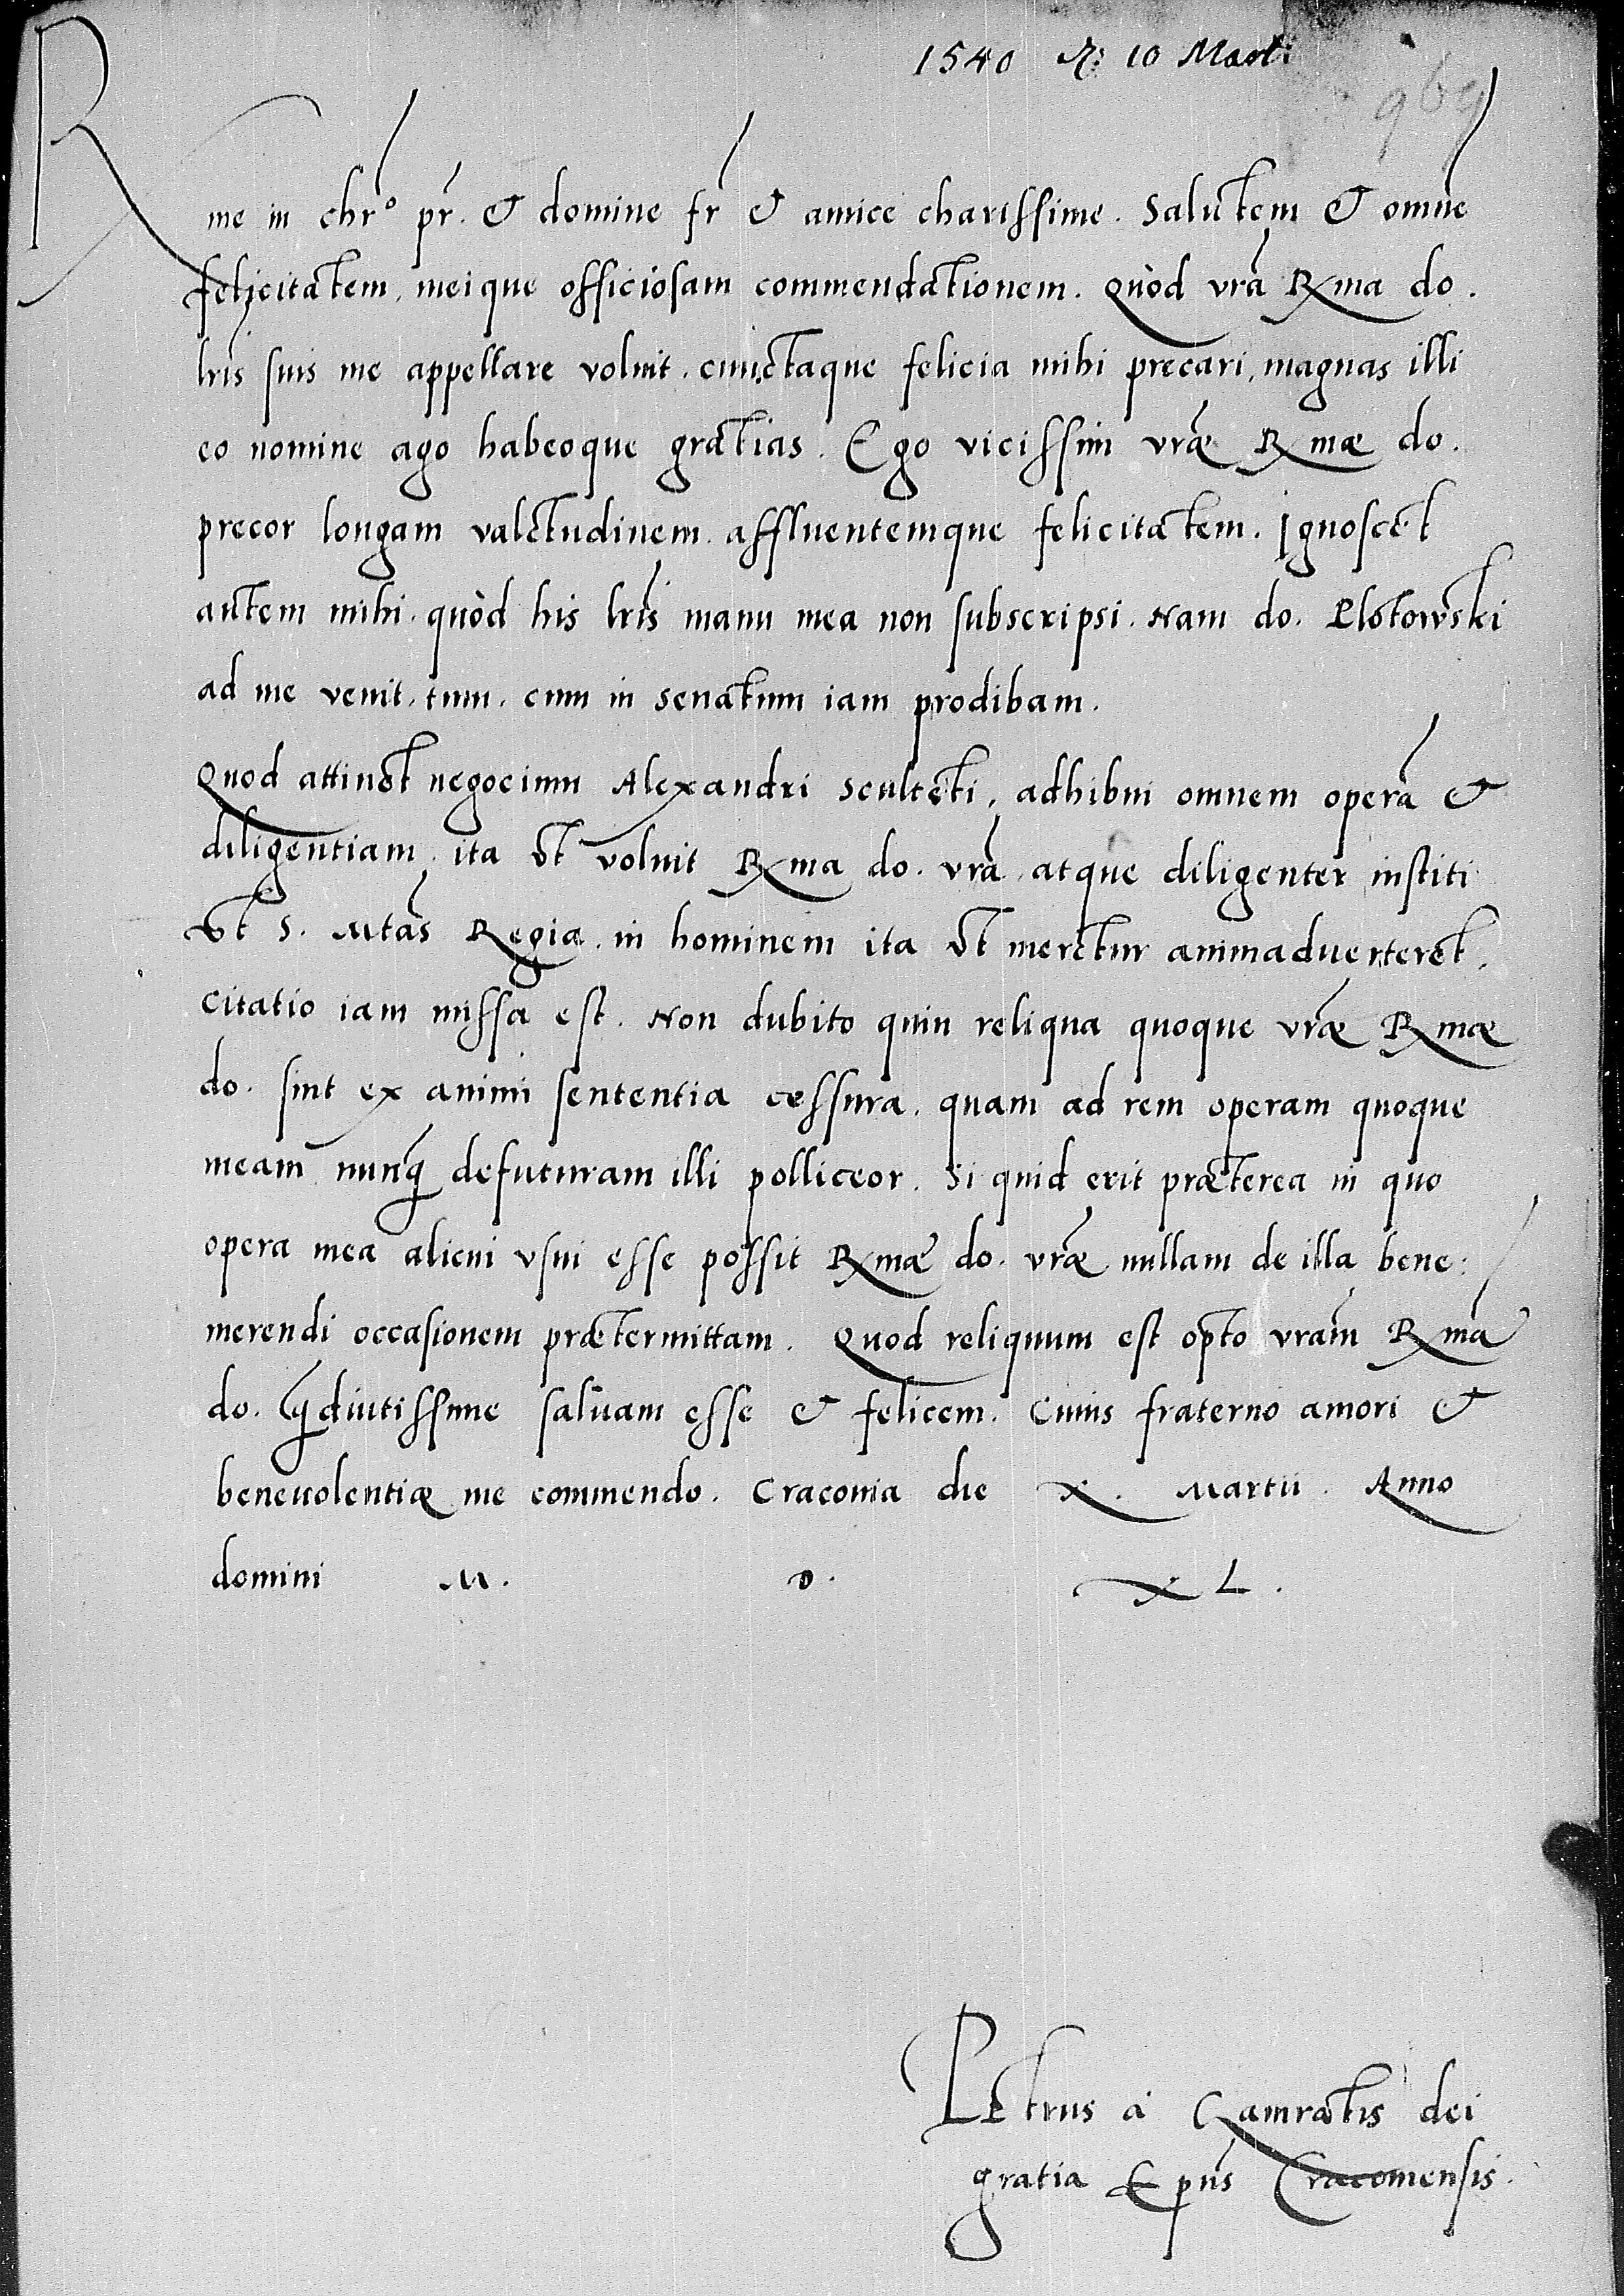 1540 10 Marti
969
Rme in chro pr. & domine fr & amice charissime. Salutem & omne
felicitatem, meique officiosam commendationem. Quòd vra Rma do.
lris suis me appellare voluit. cunctaque felicia mihi precari, magnas illi
eo nomine ago habeoque gratias. Ego vicissim vræ Rmæ do.
precor longam valetudinem. affluentemque felicitatem. Ignoscet
autem mihi. quòd his lris manu mea non subscripsi. Nam do. Plotowski
ad me venit. tum. cum in senatum iam prodibam.
Quod attinet negocium Alexandri Sculteti, adhibui omnem operā &
diligentiam. ita vt voluit Rma do. vra. atque diligenter institi
vt S. Mtas Regia. in hominem ita vt meretur animaduerteret.
citatio iam missa est. Non dubito quin reliqua quoque vræ Rmæ
do. sint ex animi sententia cessura. quam ad rem operam quoque
meam nunq̄ defuturam illi polliceor. Si quid erit præterea in quo
opera mea alicui vsui esse possit Rmæ do. vræ nullam de illa bene:
merendi occasionem prætermittam. Quod reliquum est opto vram Rmā
do. q̄ diutissime saluam esse & felicem. Cuius fraterno amori &
beneuolentiæ me commendo. Cracouia die X. Martii. Anno
domini M. D. XL.
Petrus à Gamratis dei
gratia Epus Cracouiensis.